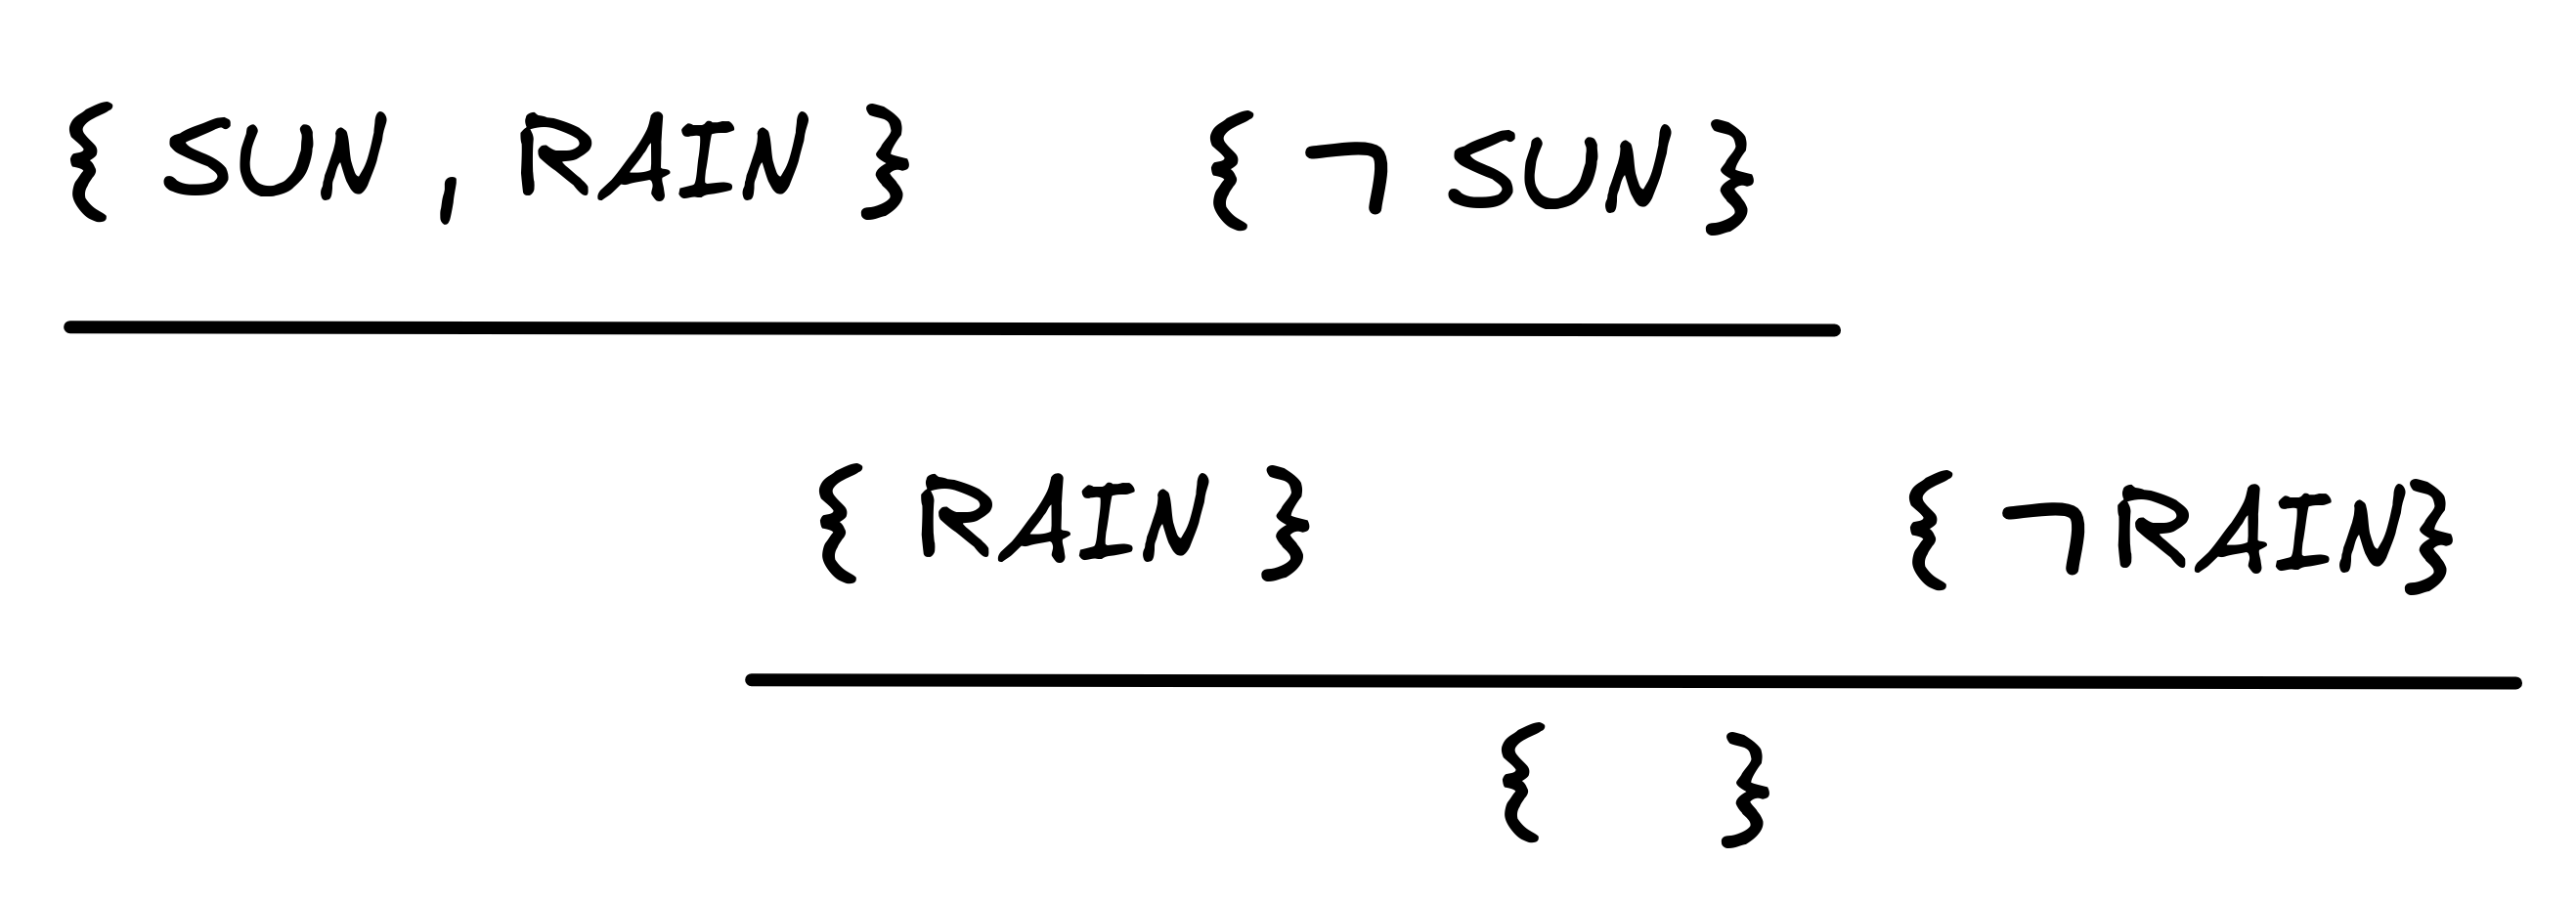 { SUN , RAIN } { ¬ SUN }
{ RAIN } { ¬ RAIN }
{ }